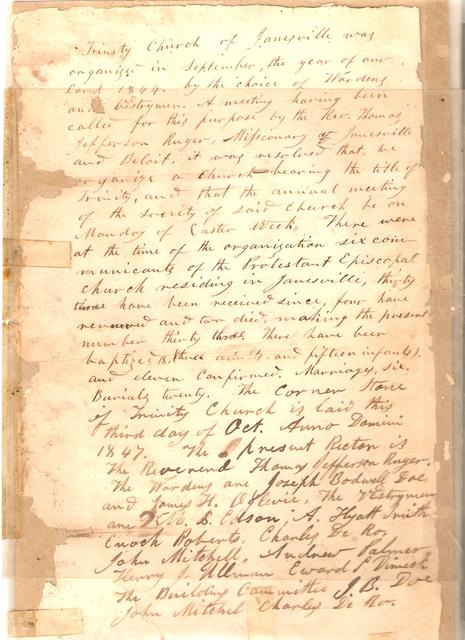 Trinity Church of Janesville was
organized in September, the year of our
Lord 1844. by the choice of Wardens
and Vestrymen. A meeting having been
called for this purpose by the Rev. Thomas
Jefferson Ruger, Missionary of Janesville
and Beloit, it was resolved that, we
organize a Church bearing the title of
Trinity, and that the annual meeting
of the Society of said Church be on
Monday of Easter Week. There were
at the time of the organization six com-
municants of the Protestant Episcopal
Church residing in Janesville, thirty
three have been received since, four have
removed and two died, making the present
number thirty three. There have been
baptized 18, (three adults, and fifteen infants)
and eleven confirmed. Marriages, six.
Burials twenty. The Corner Stone
of Trinity Church is laid this
third day of Oct. Anno Domini
1847. The present Rector is
The Reverend Thomas Jefferson Ruger.
The Wardens are Joseph Bodwell Doe
and James H. Ogilvie, The Vestrymen
are B. Edson, A. Hyatt Smith
Enoch Roberts, Charles De Ro,
John Mitchell, Andrew Palmer
Henry J. Ullman
The Building Committee J. B. Doe
John Mitchel Charles De Ro.